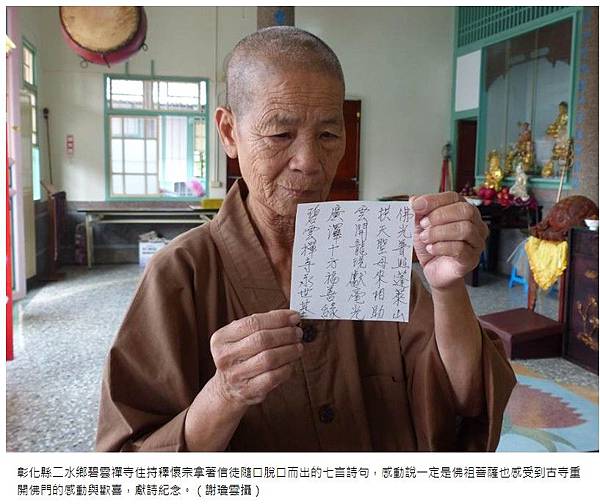 佛光普照蓬萊山
扶天聖母來相助
雲開龍現獻毫光
廣澤十方福善緣
碧雲禪寺永世基
彰化縣二水鄉碧雲禪寺住持釋懷宗拿著信徒隨口脫口而出的七言詩句，感動說一定是佛祖菩薩也感受到古寺重
開佛門的感動與歡喜，獻詩紀念。（謝瓊雲攝）